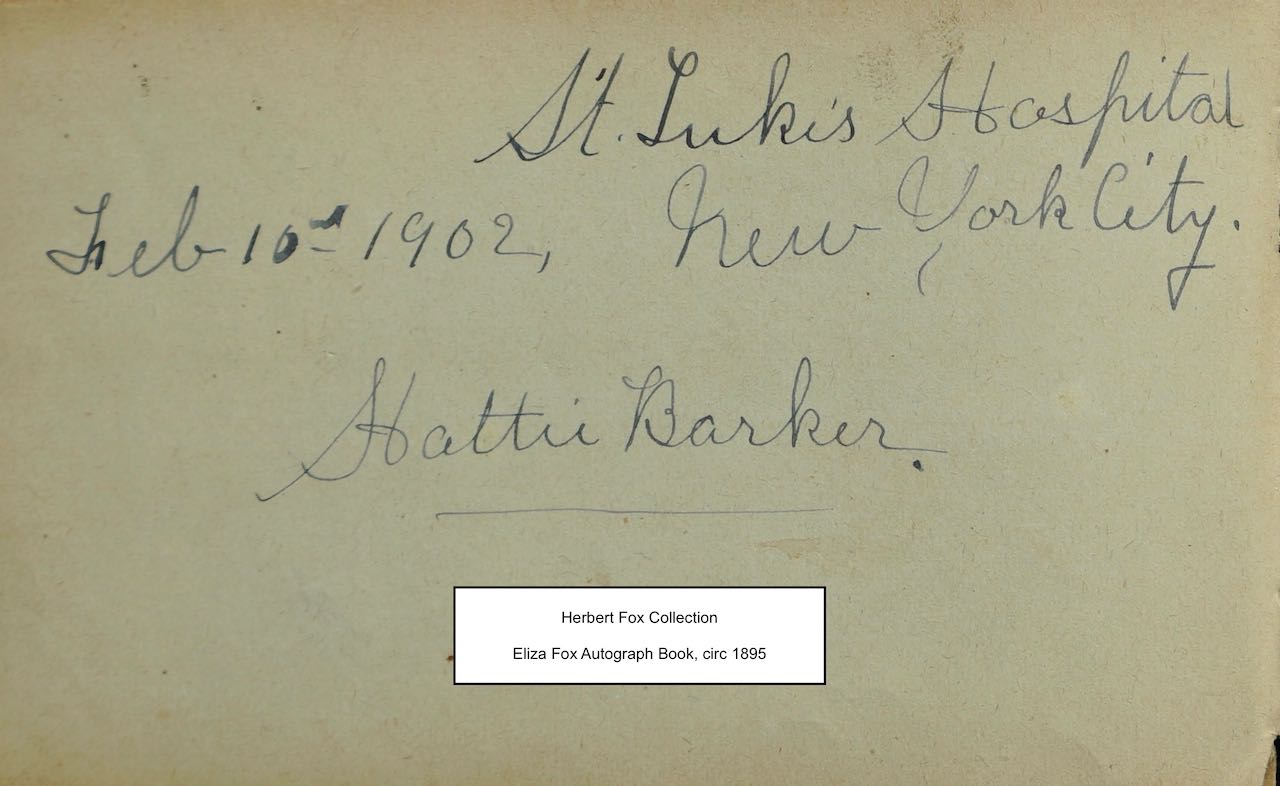 St. Luke's Hospital
New York City.
Feb 10th 1902,
Hattie Barker.
Herbert Fox Collection
Eliza Fox Autograph Book, circ 1895